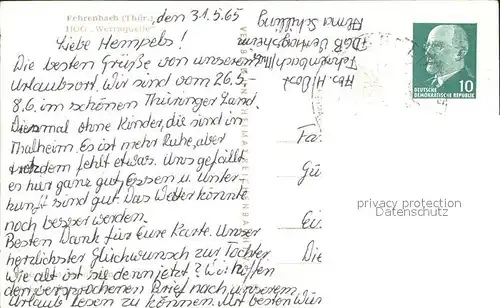 Fehrenbach (Thür.)
HOG „Werraquelle"
den 31.5.65
Liebe Hempels!
Die besten Grüße von unserem
Urlaubsort. Wir sind vom 26.5-
8.6. im schönen Thüringer Land.
Diesmal ohne Kinder, die sind in
Thalheim. Es ist mehr Ruhe, aber
trotzdem fehlt etwas. Uns gefällt
es hier ganz gut, Essen u. Unter-
kunft sind gut. Das Wetter könnte
noch besser werden.
Besten Dank für Eure Karte. Unser
herzlichster Glückwunsch zur Tochter.
Wie alt ist sie denn jetzt? Wir hoffen
den versprochenen Brief nach unserem
Urlaub lesen zu können. Mit besten
Abs. H.
Fehrenbach/Thür
FDGB Vertragsheim
Schilling
10
DEUTSCHE
DEMOKRATISCHE REPUBLIK
Fa.
Gü
Ei.
Die
privacy protection
Datenschutz